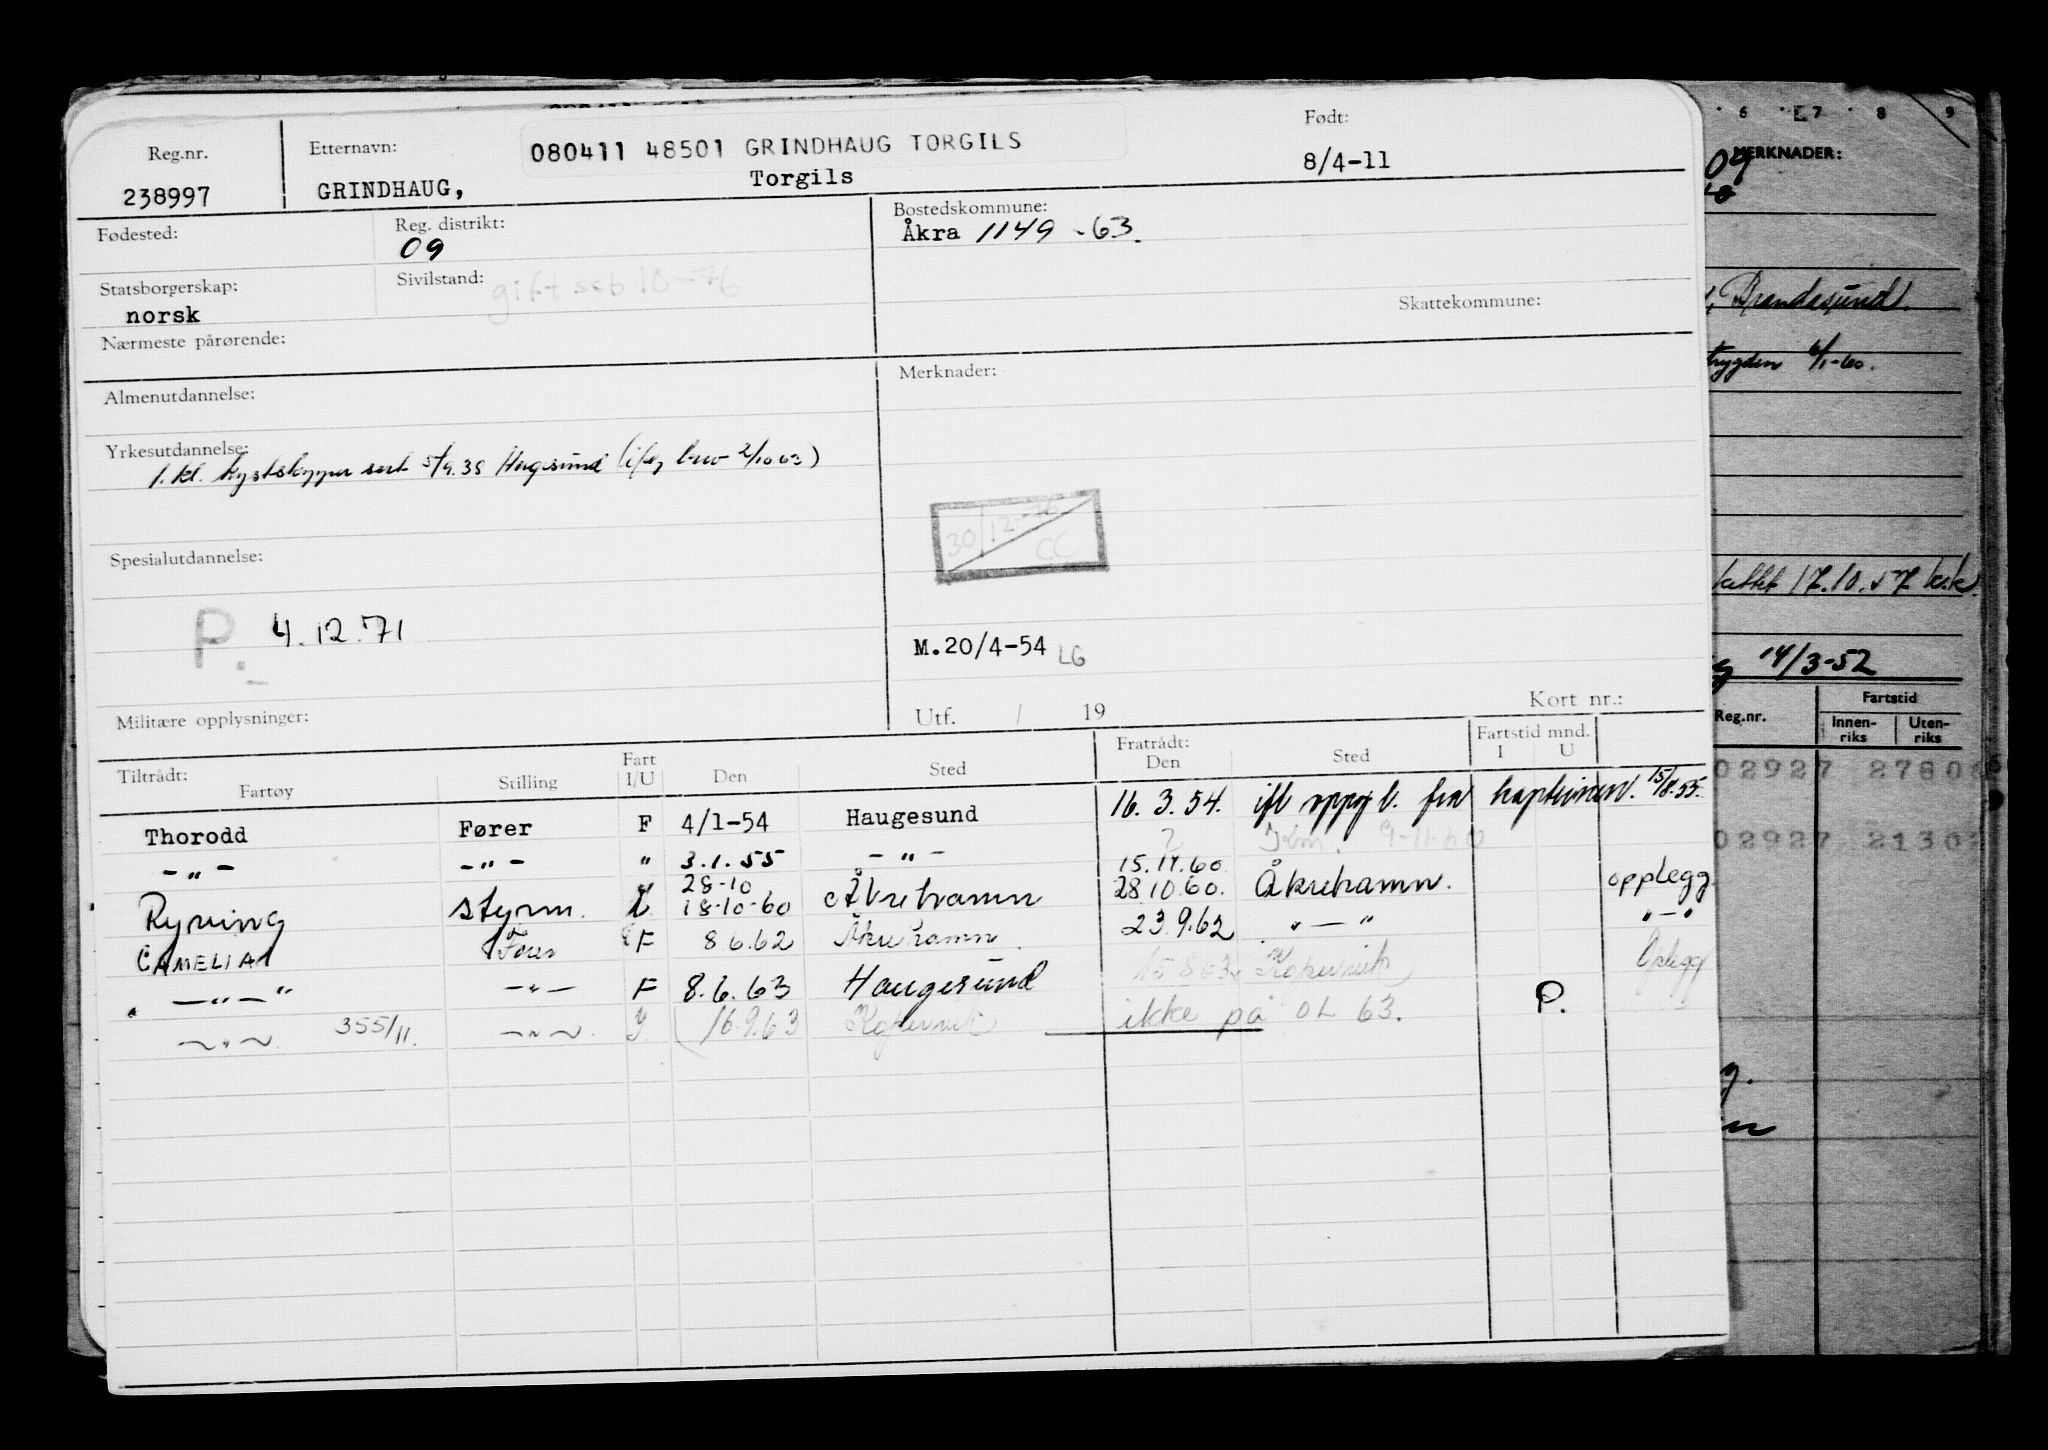 Reg.nr.
238997
Etternavn:
GRINDHAUG,
080411 48501 GRINDHAUG TORGILS
Torgils
Født:
8/4-11
Fødested:
Reg. distrikt:
09
Bostedskommune:
Åkra 1149 -63.
Statsborgerskap:
norsk
Sivilstand:
gift ssb 10-76
Skattekommune:
Nærmeste pårørende:
Almenutdannelse:
Merknader:
Yrkesutdannelse:
1. kl. kystskipper sert 5/9.38 Haugesund (ifg brev 2/10 63)
30/12-76
CC
Spesialutdannelse:
P. 4.12.71
M.20/4-54 LG
Militære opplysninger:
Utf. / 19
Kort nr.:
Tiltrådt:
Fartøy
Stilling
Fart
I/U
Den
Sted
Fratrådt:
Den
Sted
Fartstid mnd.
I U
Thorodd Fører F 4/1-54 Haugesund 16.3.54. ifl oppg b. fra 15/8.55.
-"- -"- " 3.1.55 -"- 15.11.60
28-10
Ryving styrm. 18-10-60 Åkrehamn 28.10.60. Åkrehamn. opplegg
CAMELIA Fører F 8 6.62 Åkrehamn 23.9.62 "-" "-"
-"-" -"- F 8.6.63 Haugesund 15 8 63 Kopervik Oplegg
-"- 355/11. -"- 16.9.63 Kopervik ikke på OL 63. P.
6 7 8 9
09
MERKNADER:
Brandasund
trygden 6/1-60.
17.10.57
14/3-52
Reg.nr.
Fartstid
Innen-
riks
Uten-
riks
02927 2780
02927 2130